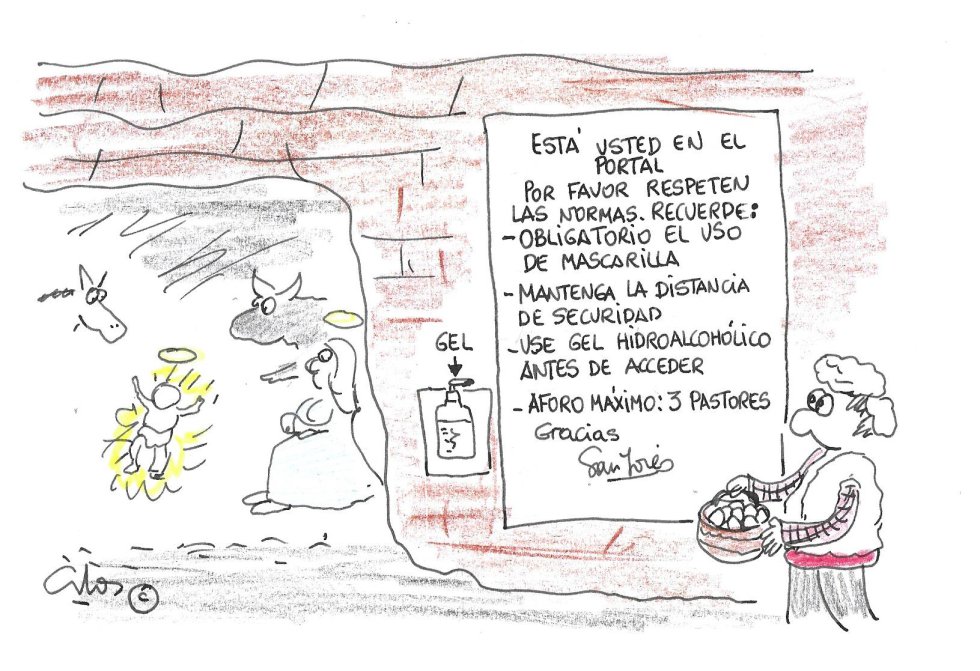 ESTÁ USTED EN EL
PORTAL
POR FAVOR RESPETEN
LAS NORMAS. RECUERDE:
- OBLIGATORIO EL USO
DE MASCARILLA
- MANTENGA LA DISTANCIA
DE SEGURIDAD
- USE GEL HIDROALCOHÓLICO
ANTES DE ACCEDER
- AFORO MÁXIMO: 3 PASTORES
Gracias
San José
GEL
©